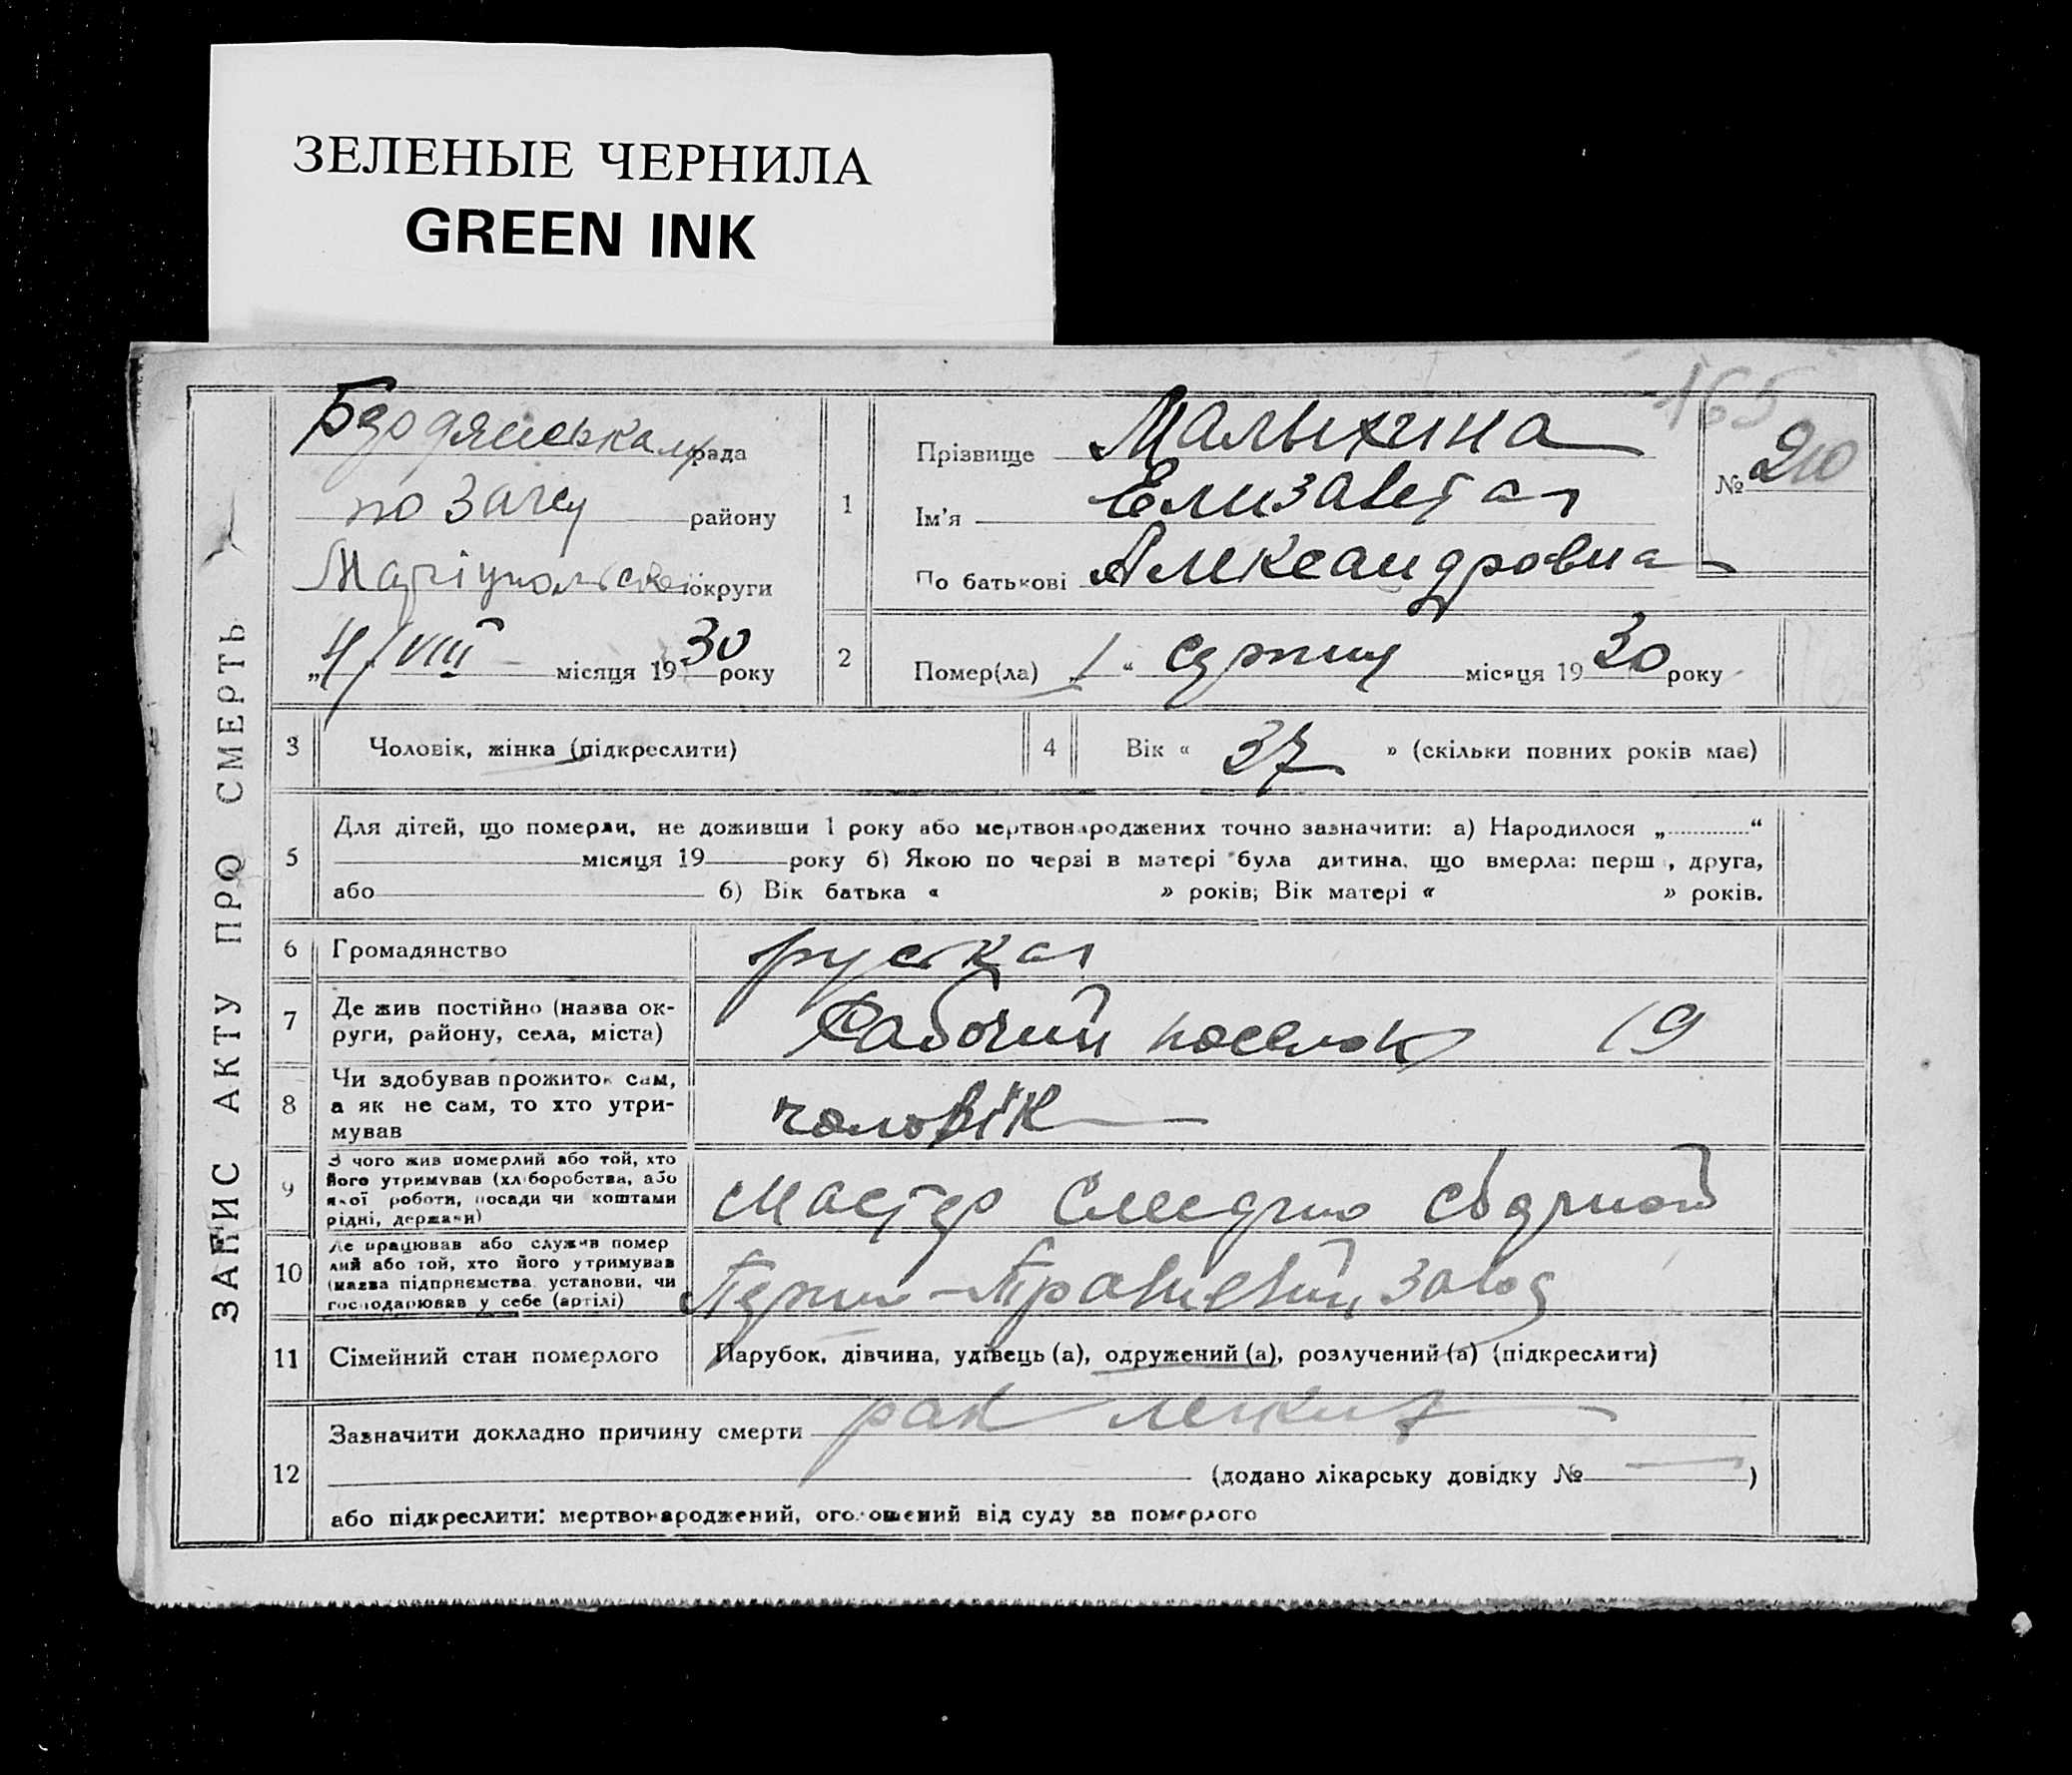 ЗЕЛЕНЫЕ ЧЕРНИЛА
GREEN INK
165
ЗАПИС АКТУ ПРО СМЕРТЬ
Бердянська м/рада
по Загсу району
Маріупольської округи
„4/VIII місяця 1930 року
1
Прізвище Малыхина
Ім'я Елизавета
По батькові Александровна
№ 210
2
Помер(ла) 1 “ серпня місяця 1930 року
3 Чоловік, жінка (підкреслити)
4 Вік « 37 » (скільки повних років має)
5 Для дітей, що померли, не доживши 1 року або мертвонароджених точно зазначити: а) Народилося „ “
місяця 19 року б) Якою по черзі в матері була дитина, що вмерла: перша, друга,
або б) Вік батька « » років; Вік матері « » років.
6 Громадянство руская
7 Де жив постійно (назва округи, району, села, міста) Рабочий поселок 19
8 Чи здобував прожиток сам, а як не сам, то хто утримував чоловік
9 З чого жив померлий або той, хто його утримував (хліборобства, або якої роботи, посади чи коштами рідні, держави) мастер сборной
10 Де працював або служив померлий або той, хто його утримував (назва підприємства, установи, чи господарював у себе (артілі) завод
11 Сімейний стан померлого Парубок, дівчина, удівець (а), одружений (а), розлучений (а) (підкреслити)
12 Зазначити докладно причину смерти рак
(додано лікарську довідку № — )
або підкреслити: мертвонароджений, оголошений від суду за померлого